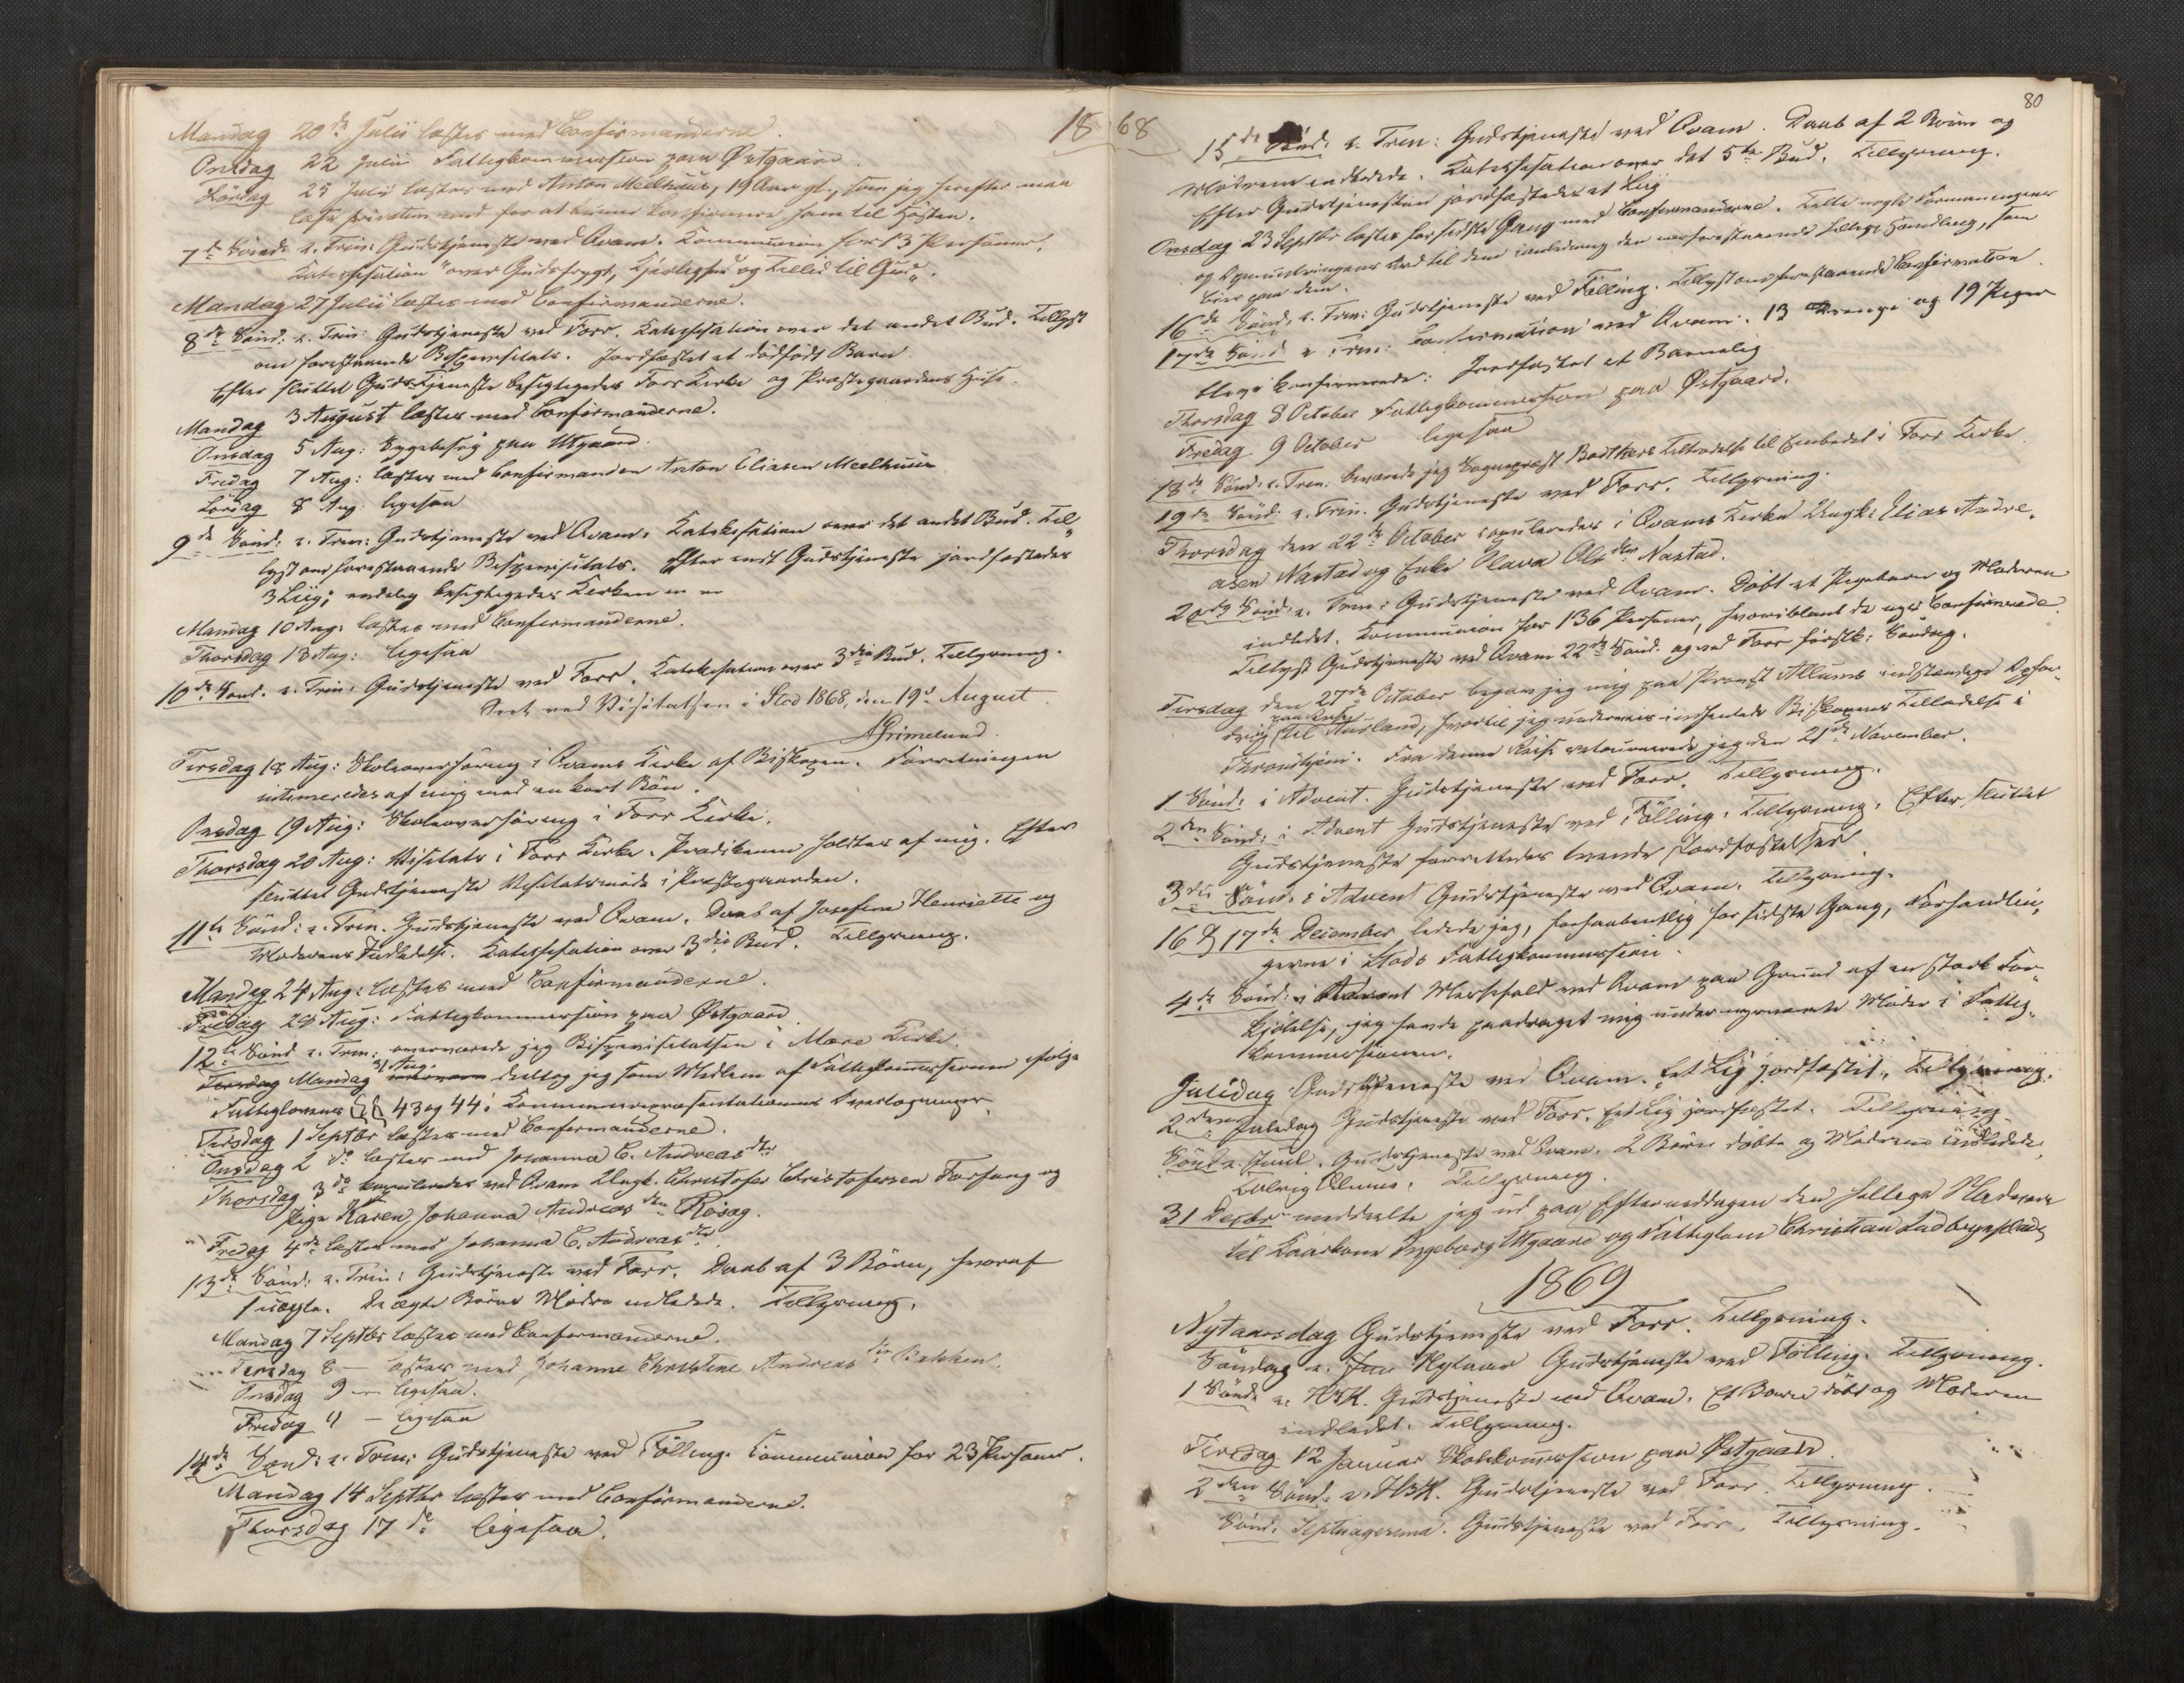 18
Mandag 20de Julii læstes med Confirmanderne.
Onsdag 22 Julii Fattigkommission paa Østgaard.
Lördag 25 Julii læstes med Anton Meelhuus, 19 Aar gl., som jeg herefter maa
læse privatim med for at kunne konfirmere ham til Hösten.
7de Sönd: e. Trin: Gudstjeneste ved Qvam. Kommunion for 13 Personer.
Katechisation "over Gudsfrygt, Kjærlighed og Tillid til Gud".
Mandag 27 Julii læstes med Confirmanderne.
8de Sönd: e. Trin: Gudstjeneste ved Forr. Katechisation over det andet Bud. Tillyst
om forestaaende Bispevisitats. Jordfæstet et dödfödt Barn.
Efter sluttet Gudstjeneste besigtigedes Forr Kirke og Præstegaardens Huse.
Mandag 3 August læstes med Confirmanderne.
Onsdag 5 Aug: Sygebesög paa Utgaard.
Fredag 7 Aug: læstes med Confirmanden Anton Eliasen Meelhuus
Lördag 8 Aug. ligesaa
9de Sönd: e. Trin: Gudstjeneste ved Qvam. Katekisation over det andet Bud. Til-
lyst om forestaaende Bispevisitats. Efter endt Gudstjeneste jordfæstedes
3 Liig; endelig besigtigedes Kirken
Mandag 10 Aug: læstes med Confirmanderne.
Thorsdag 13 Aug: ligesaa
10de Sönd. e. Trin: Gudstjeneste ved Forr. Katekisation over 3die Bud. Tillysning.
Seet ved Visitatsen i Stod 1868, den 19d August
AGrimelund.
Tirsdag 18 Aug: Skoleoverhöring i Qvams Kirke af Biskopen. Forretningen
intimeredes af mig med en kort Bön.
Onsdag 19 Aug: Skoleoverhöring i Forr Kirke.
Thorsdag 20 Aug: Visitats i Forr Kirke. Prædikenen holdtes af mig. Efter
sluttet Gudstjeneste Visitatsmöde i Præstegaarden.
11te Sönd: e. Trin. Gudstjeneste ved Qvam. Daab af Josefine Henriette og
Moderens Indledelse. Katechisation over 3die Bud. Tillysning.
Mandag 24 Aug: læstes med Confirmanderne.
Fredag 28 Aug: Fattigkommission paa Østgaard
12te Sönd e. Trin: overværede jeg Bispevisitatsen i Mære Kirke.
Mandag 31 Aug. deeltog jeg som Medlem af Fattigkommissionen ifölge
Fattiglovens §§ 43 og 44 i Kommunerepræsentationens Overlægninger.
Tirsdag 1 Septbr læstes med Confirmanderne.
Onsdag 2 do læstes med Johanna C. Andreasdtr
Thorsdag 3de kopuleredes ved Qvam Ungk. Christofer Christofersen Forfang og
Pige Karen Johanna Andreasdtr Rösæg.
Fredag 4de læstes med Johanna C. Andreasdtr
13de Sönd: e. Trin: Gudstjeneste ved Forr. Daab af 3 Börn, hvoraf
1 uægte. De ægte Börns Mödre indledede. Tillysning.
Mandag 7 Septbr læstes med Confirmanderne.
Tirsdag 8 – læstes med Johanne Christine Andreasdtr Bakken.
Onsdag 9 – ligesaa.
Fredag 11 – ligesaa
14de Sönd: e. Trin: Gudstjeneste ved Fölling. Communion for 23 Personer.
Mandag 14 Septbr læstes med Confirmanderne.
Thorsdag 17 do ligesaa.
68
80
15de Sönd: e. Trin: Gudstjeneste ved Qvam. Daab af 2 Börn og
Mödrene indledede. Katechisation over det 5te Bud. Tillysning.
Efter Gudstjenesten jordfæstedes et Liig
Onsdag 23 Septbr læstes for sidste Gang med Confirmanderne. Talte nogle Formaningens
og Opmuntringens Ord til dem i anledning den nærforestaaende hellige Handling, som
bier paa dem.
16de Sönd: e. Trin: Gudstjeneste ved Fölling. Tillyst om forestaaende Confirmation.
17de Sönd e Trin: Confirmation ved Qvam. 13 Drenge og 19 Piger
bleve konfirmerede. Jordfæstet et Barnelig
Thorsdag 8 October Fattigkommission paa Østgaard.
Fredag 9 October ligesaa
18de Sönd: e. Trin: overværede jeg Sognepræst Tiltrædelse til Embedet i Forr Kirke.
19de Sönd: e. Trin. Gudstjeneste ved Forr. Tillysning.
Thorsdag den 22de October copuleredes i Qvams Kirke Ungk: Elias Andre-
asen Nastad og Enke Olava Olsdtr Nastad.
20de Sönd: e. Trin: Gudstjeneste ved Qvam. Döbt et Pigebarn og Moderen
indledet. Kommunion for 136 Personer, hvoriblandt de nys Confirmerede.
Tillyst Gudstjeneste ved Qvam 22de Sönd. og ved Forr förstk: Söndag.
Tirsdag den 27de October begav jeg mig paa Provst Allums indstændige Opfor-
dring til hvortil jeg underveis indhentede Biskopens Tilladelse i
Throndhjem. Fra denne Reise retournerede jeg den 21de November.
1 Sönd: i Advent. Gudstjeneste ved Forr. Tillysning.
2den Sönd: i Advent Gudstjeneste ved Fölling. Tillysning. Efter sluttet
Gudstjeneste forrettedes tvende Jordfæstelser
3die Sönd: i Advent Gudstjeneste ved Qvam. Tillysning.
16 & 17de December ledede jeg, forhaabentlig for sidste Gang, Forhandlin-
gerne i Stods Fattigkommission.
4de Sönd: i Advent Messefald ved Qvam paa Grund af en stærk For-
kjölelse, jeg havde paadraget mig under ovennævnte Möder i Fattig-
kommissionen.
Juledag Gudstjeneste ved Qvam. Eet Lig jordfæstet. Tillysning.
2den Juledag Gudstjeneste ved Forr. Eet Lig jordfæstet. Tillysning
Sönd e. Juul. Gudstjeneste ved Qvam. 2 Börn döbte og Mödrene indledede.
Tillysning.
31 Decbr meddeelte jeg ud paa Eftermiddagen den hellige Nadvere
til Kaarkone Ingeborg Utgaard og Fattiglem Christian Ladbynesplads
1869
Nytaarsdag Gudstjeneste ved Forr. Tillysning.
Söndag e. Nytaar Gudstjeneste ved Fölling. Tillysning.
1 Sönd: e. H3K. Gudstjeneste ved Qvam. Et Barn döbt og Moderen
indledet. Tillysning.
Tirsdag 12 Januar Skolekommission paa Østgaard.
2den Sönd: e. H3K. Gudstjeneste ved Forr. Tillysning.
Sönd. Septuagesima. Gudstjeneste ved Forr. Tillysning.